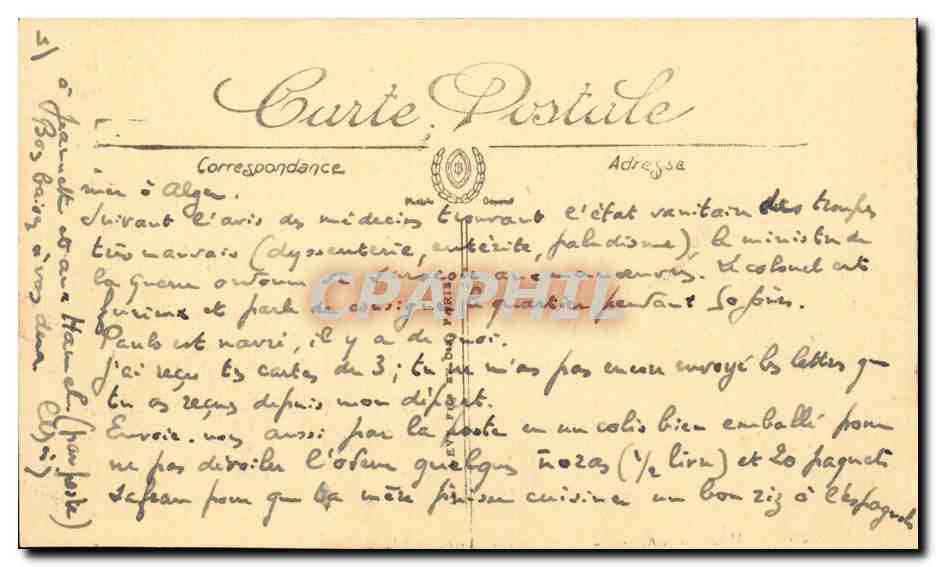 Carte Postale
Correspondance
Adresse
mer à Alger.
Suivant l'avis des médecins trouvant l'état sanitaire des troupes
très mauvais (dyssenterie, entérite, paludisme), le ministre de
la Guerre ordonne manoeuvres. Le colonel est
furieux et parle de consigne au quartier pendant 50 jours.
Paulo est navré, il y a de quoi.
J'ai reçu tes cartes du 3; tu ne m'as pas encore envoyé les lettres que
tu as reçues depuis mon départ.
Envoie-nous aussi par la poste en un colis bien emballé pour
ne pas dévoiler l'odeur quelques ñoras (1/2 livre) et 20 paquets
safran pour que ta mère puisse cuisiner un bon riz à l'espagnole
4)
à Jeannette et aux Hamel. (par poste)
Bons baisers à vous deux
CPAPHIL
PARIS